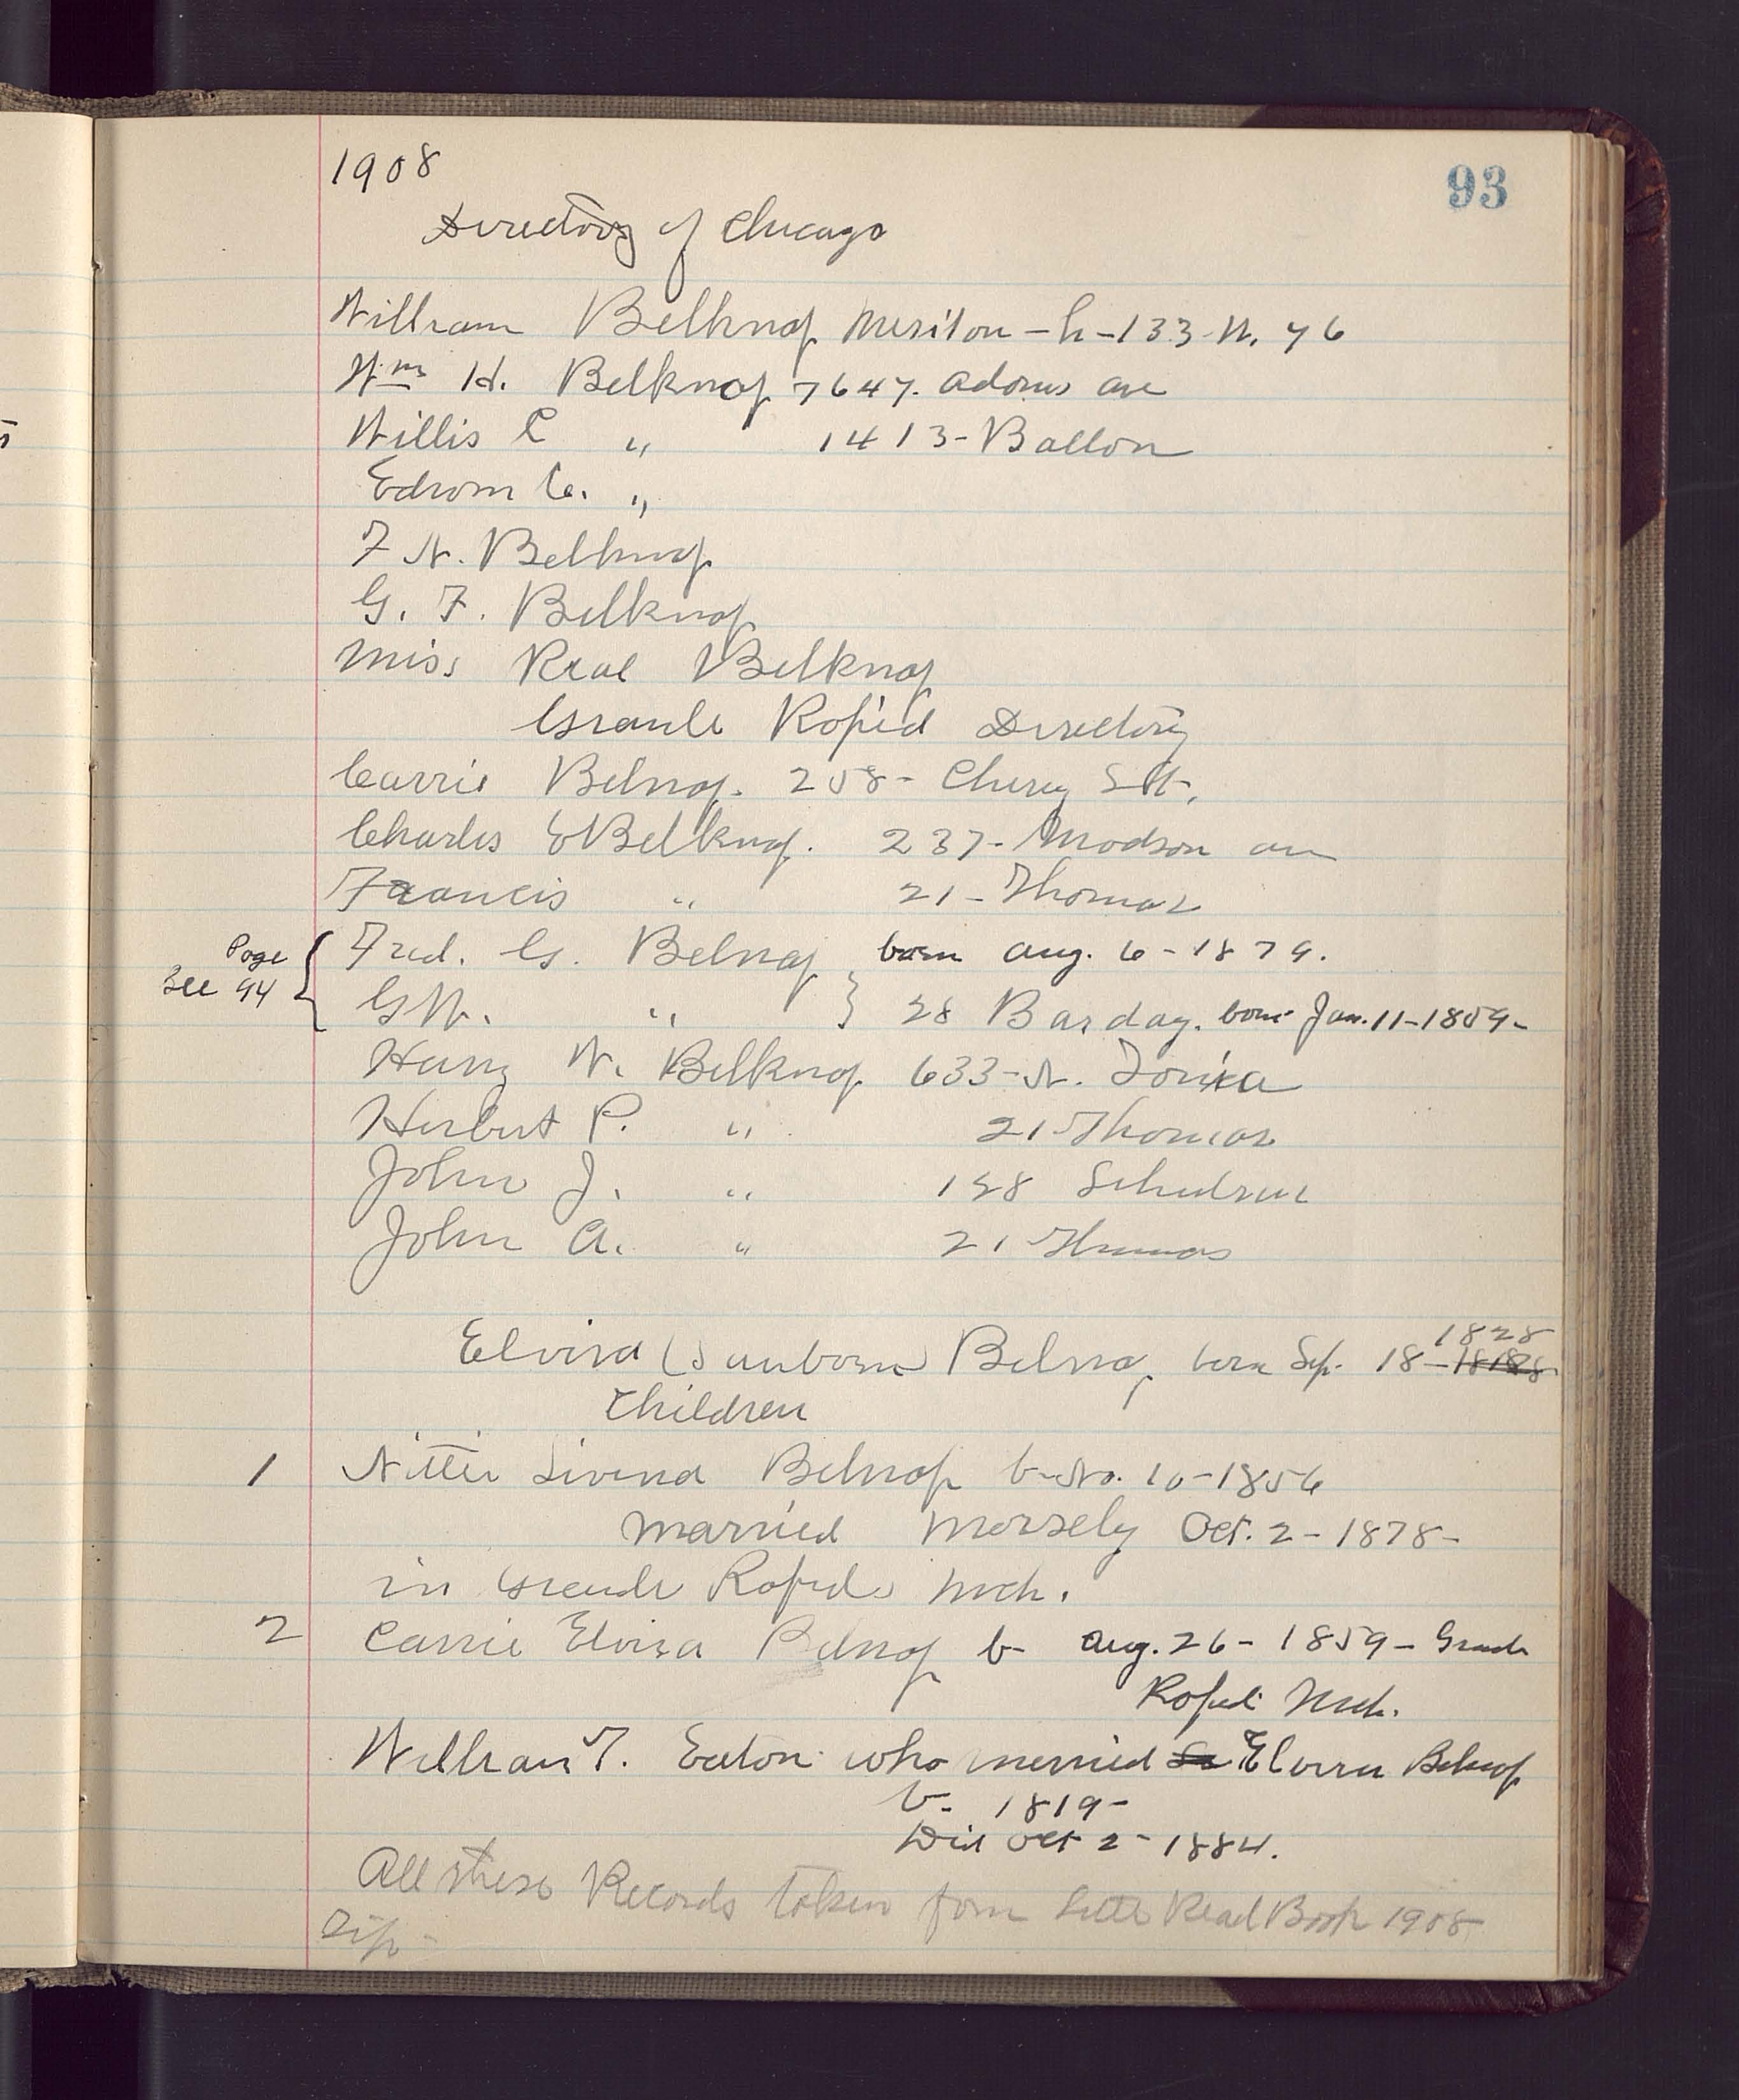 93
1908
Directory of Chicago
William Belknap h-133-W. 76
Wm H. Belknap 7647. Adams ave
Willis C " 1413-
Edwin C. "
F W. Belknap
G. F. Belknap
Miss Belknap
Grande Rapid Directory
Carrie Belnap. 258- Cherey Stt.
Charles E Belknap. 237- Madson ave
Francis " 21- Thomas
Page
See 94
Fred. G. Belnap born Aug. 6-1879.
G W. " } 28 Barclay. born Jan. 11-1859-
Harry W. Belknap 633-N. Ionia
Herbert P. " 21 Thomas
John J. " 128
John A. " 21 Thomas
Elvira (Sanborn) Belnap born Sep. 18-1828
Children
1 Nettie Belnap b- No. 10-1856
Married Oct. 2-1878-
in Grande Rapids Mich.
2 Carrie Elvira Belnap b- Aug. 26-1859- Grande
Rapids Mich.
William T. Eaton who married Elvira Belnap
b- 1819-
Died Oct 2-1884.
All these Records taken from Little Read Book 1908